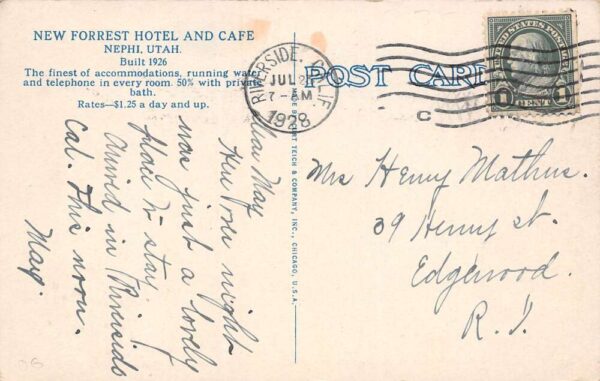 NEW FORREST HOTEL AND CAFE
NEPHI, UTAH.
Built 1926
The finest of accommodations, running water
and telephone in every room. 50% with private
bath.
Rates—$1.25 a day and up.
POST CARD
RIVERSIDE, CALIF.
JUL
7-AM
1928
UNITED STATES POSTAGE
1 CENT 1
C
Dear May
night
was just a lovely
place to stay.
Arrived in Riverside
Cal. This noon.
May.
CURT TEICH & COMPANY, INC., CHICAGO, U.S.A.
Mrs Henry Mathus.
39 Henry St.
Edgewood.
R. I.